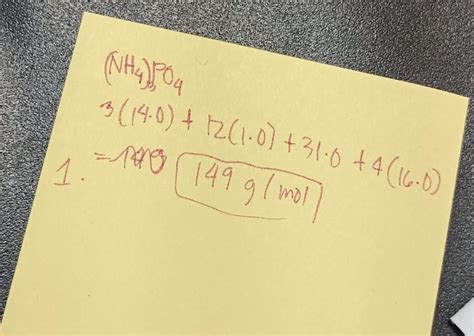 (NH4)3PO4
3(14.0) + 12(1.0) + 31.0 + 4(16.0)
1. = 149 g/mol